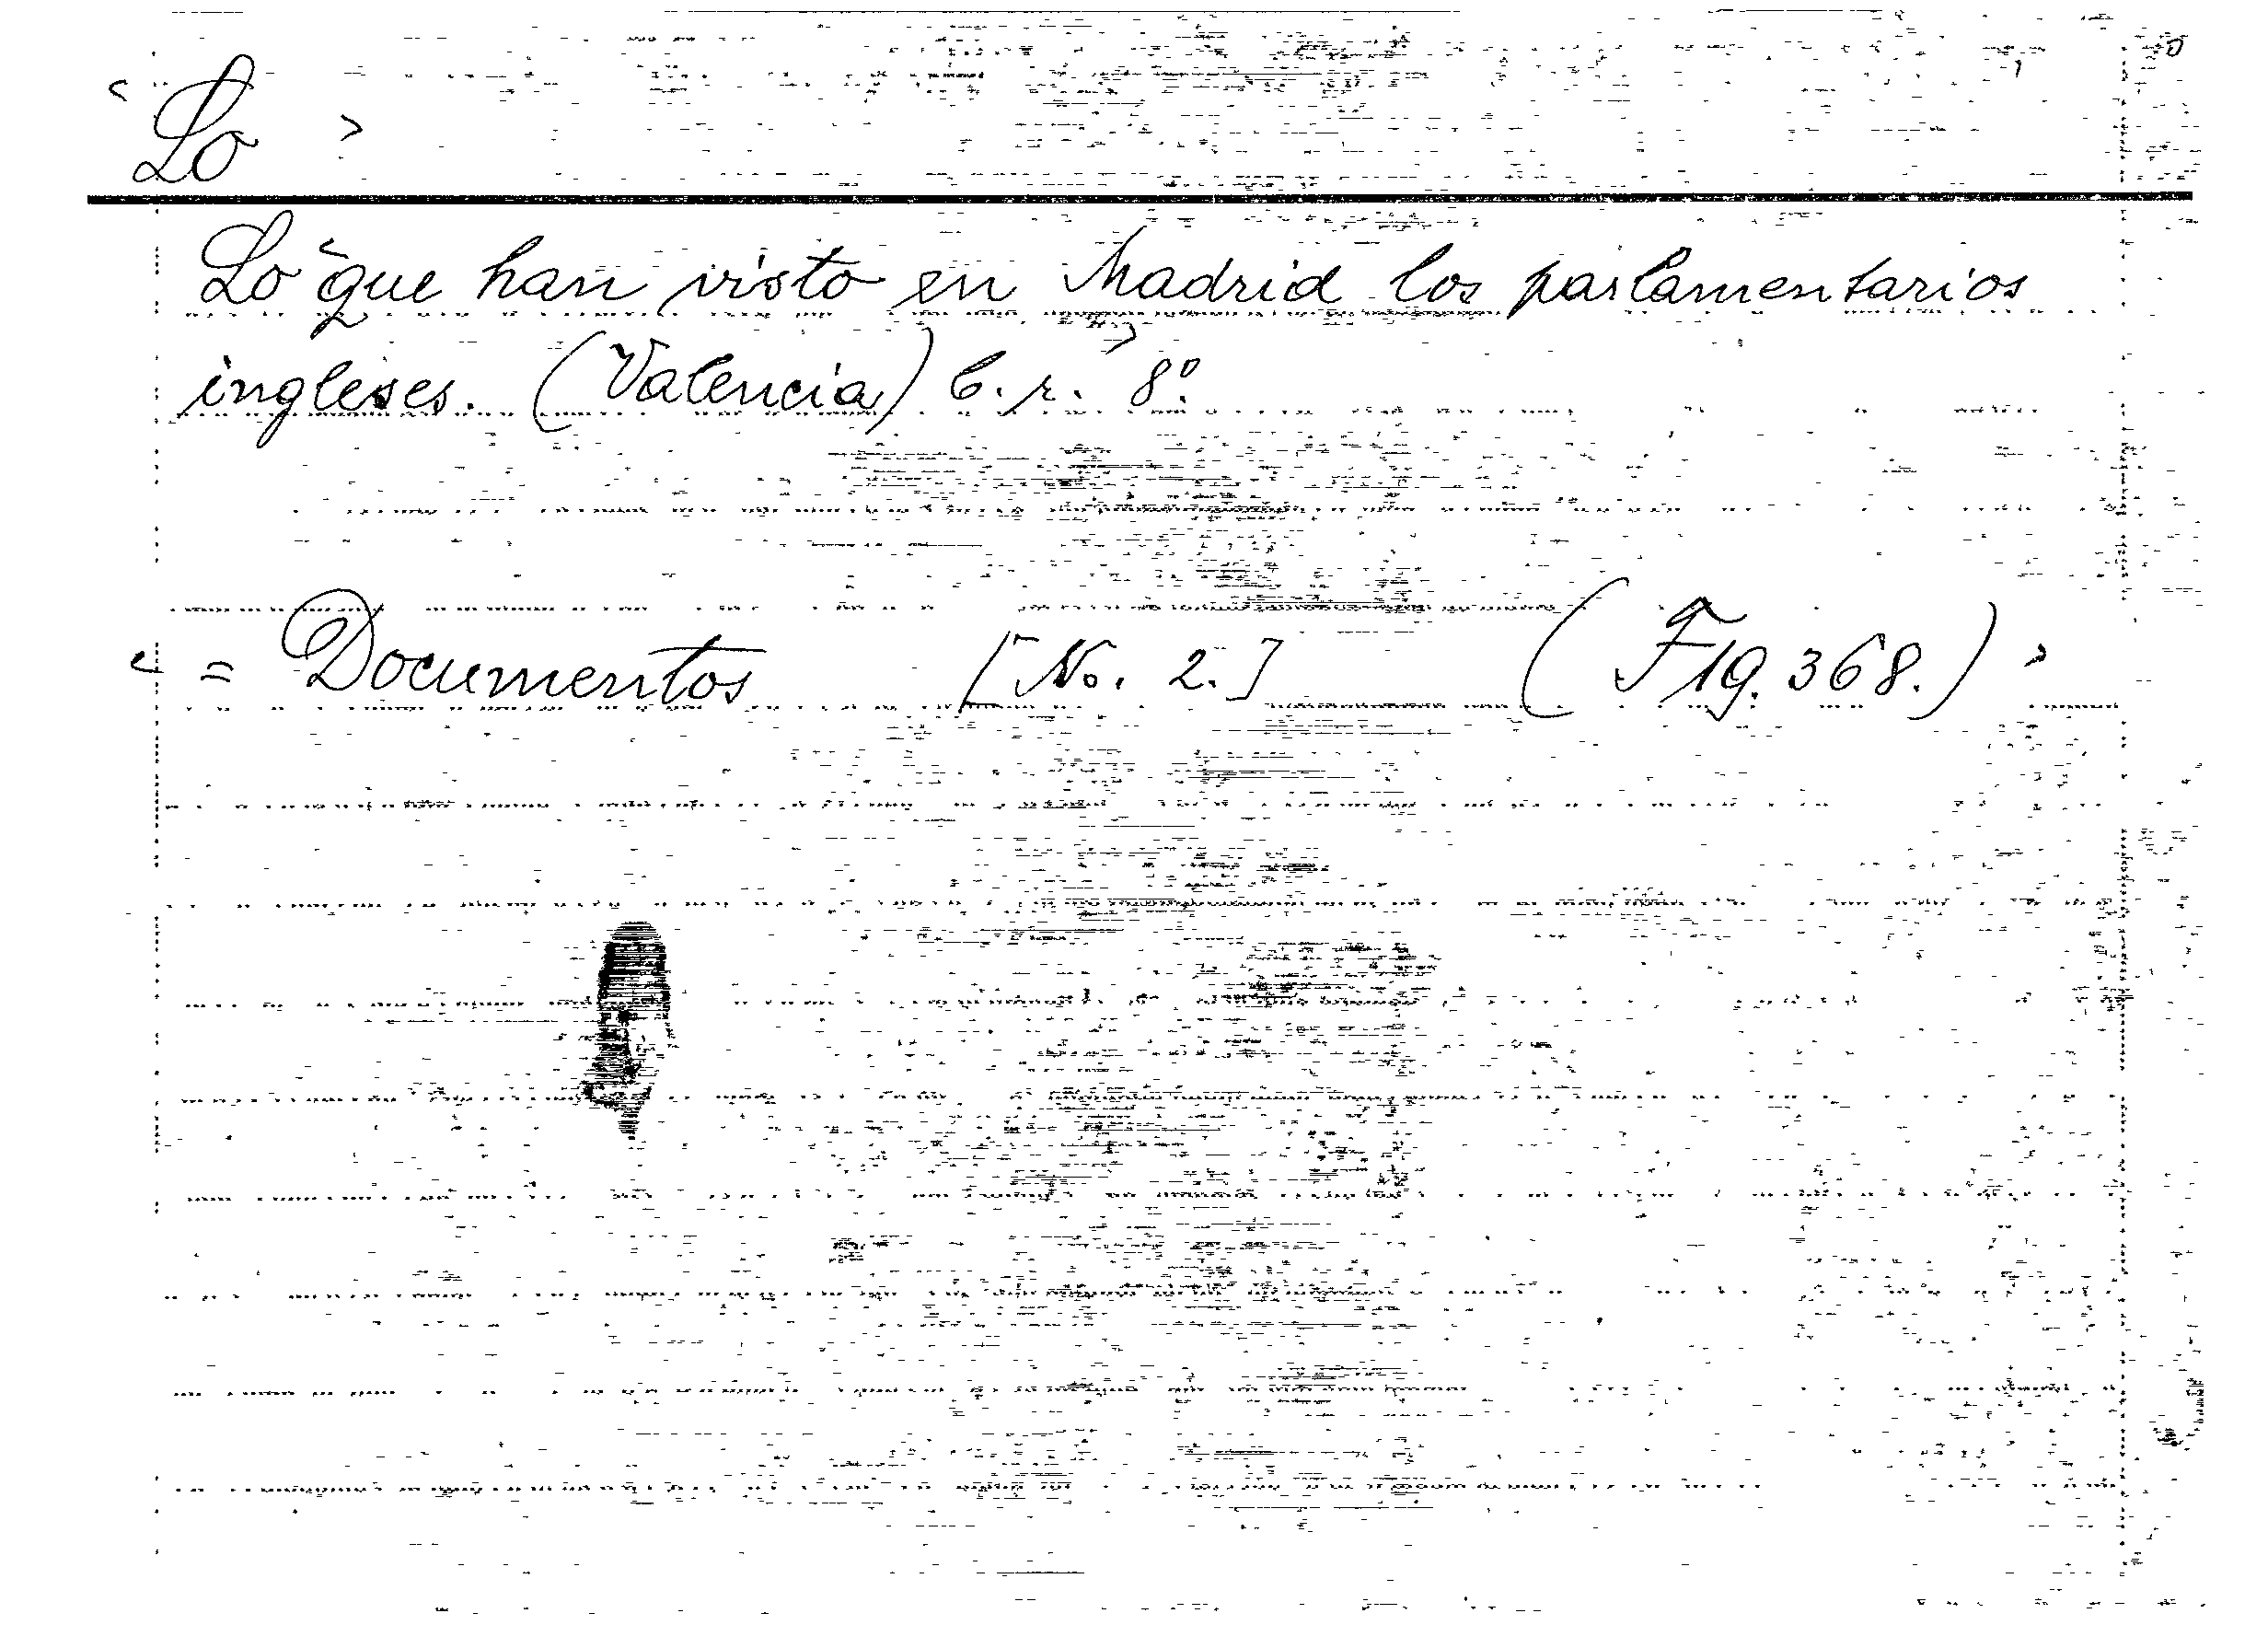 ‹ Lo ›
Lo ‹que han visto en Madrid los parlamentarios
ingleses. (Valencia) b. r. › 8º.
‹ = Documentos [No. 2.] (F19. 368.) ›